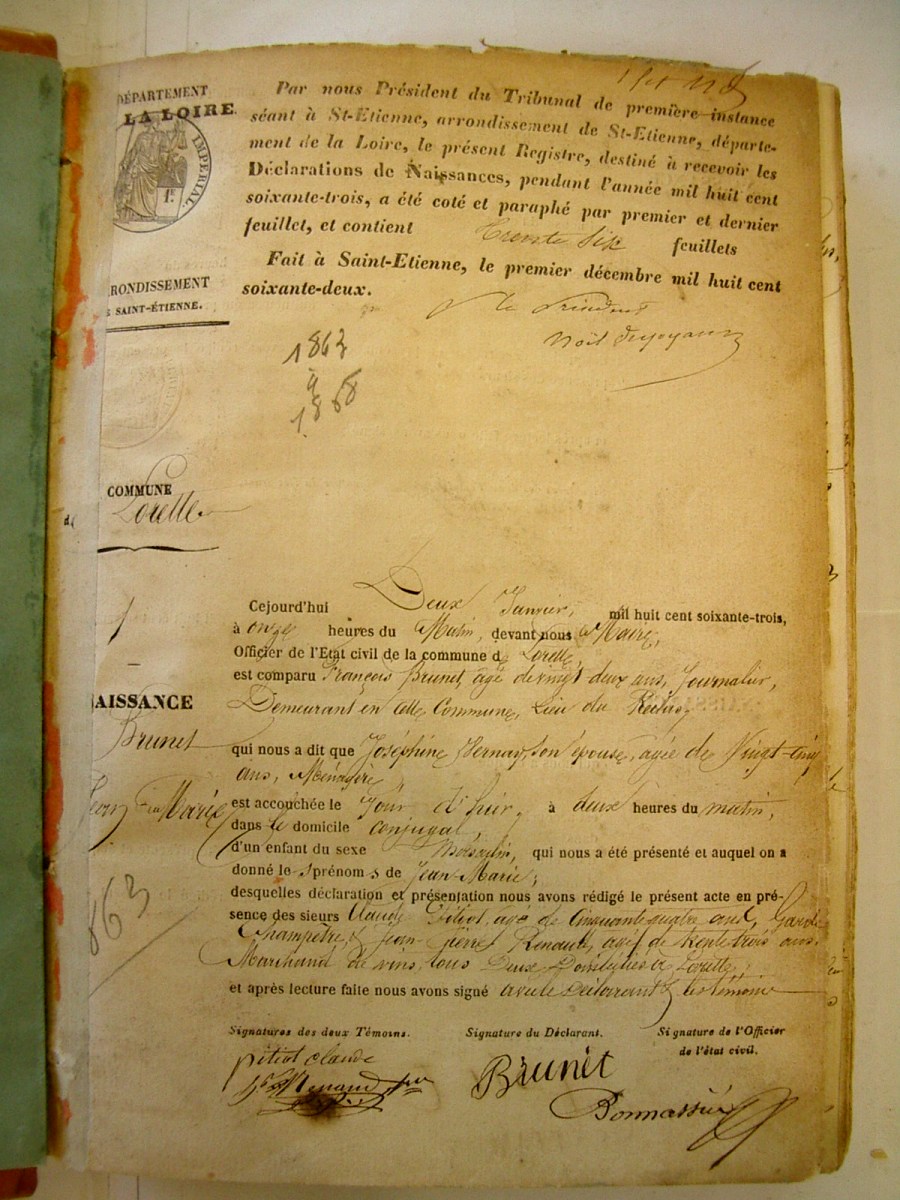 DÉPARTEMENT
LA LOIRE.
IMPÉRIAL
1F.
Par nous Président du Tribunal de première instance
séant à St-Etienne, arrondissement de St-Etienne, départe-
ment de la Loire, le présent Registre, destiné à recevoir les
Déclarations de Naissances, pendant l'année mil huit cent
soixante-trois, a été coté et paraphé par premier et dernier
feuillet, et contient Trente Six feuillets
Fait à Saint-Etienne, le premier décembre mil huit cent
soixante-deux.
RONDISSEMENT
SAINT-ÉTIENNE.
le Président
1863
à
1868
COMMUNE
de Lorette
1
AISSANCE
Brunet
Jean Marie
863
Cejourd'hui Deux Janvier, mil huit cent soixante-trois,
à onze heures du Matin, devant nous Maire,
Officier de l'Etat civil de la commune d Lorette,
est comparu François Brunet, agé de vingt deux ans, Journalier,
Demeurant en cette Commune, Lieu du Reclus,
qui nous a dit que Joséphine Vernay, son épouse, agée de Vingt-cinq
ans, Ménagère
est accouchée le Jour d'hui, à deux heures du matin,
dans le domicile conjugal,
d'un enfant du sexe Masculin, qui nous a été présenté et auquel on a
donné le s prénom s de Jean Marie;
desquelles déclaration et présentation nous avons rédigé le présent acte en pré-
sence des sieurs Claude Pitiot, agé de Cinquante quatre ans, Garde
Champetre, & Jean Pierre Renaud, agé de trente trois ans,
Marchand de vins, tous Deux Domiciliés à Lorette,
et après lecture faite nous avons signé avec le Déclarant & les témoins
Signatures des deux Témoins.
Signature du Déclarant.
Signature de l'Officier
de l'état civil.
pitiot claude
Renaud
Brunet
Bonnassieu